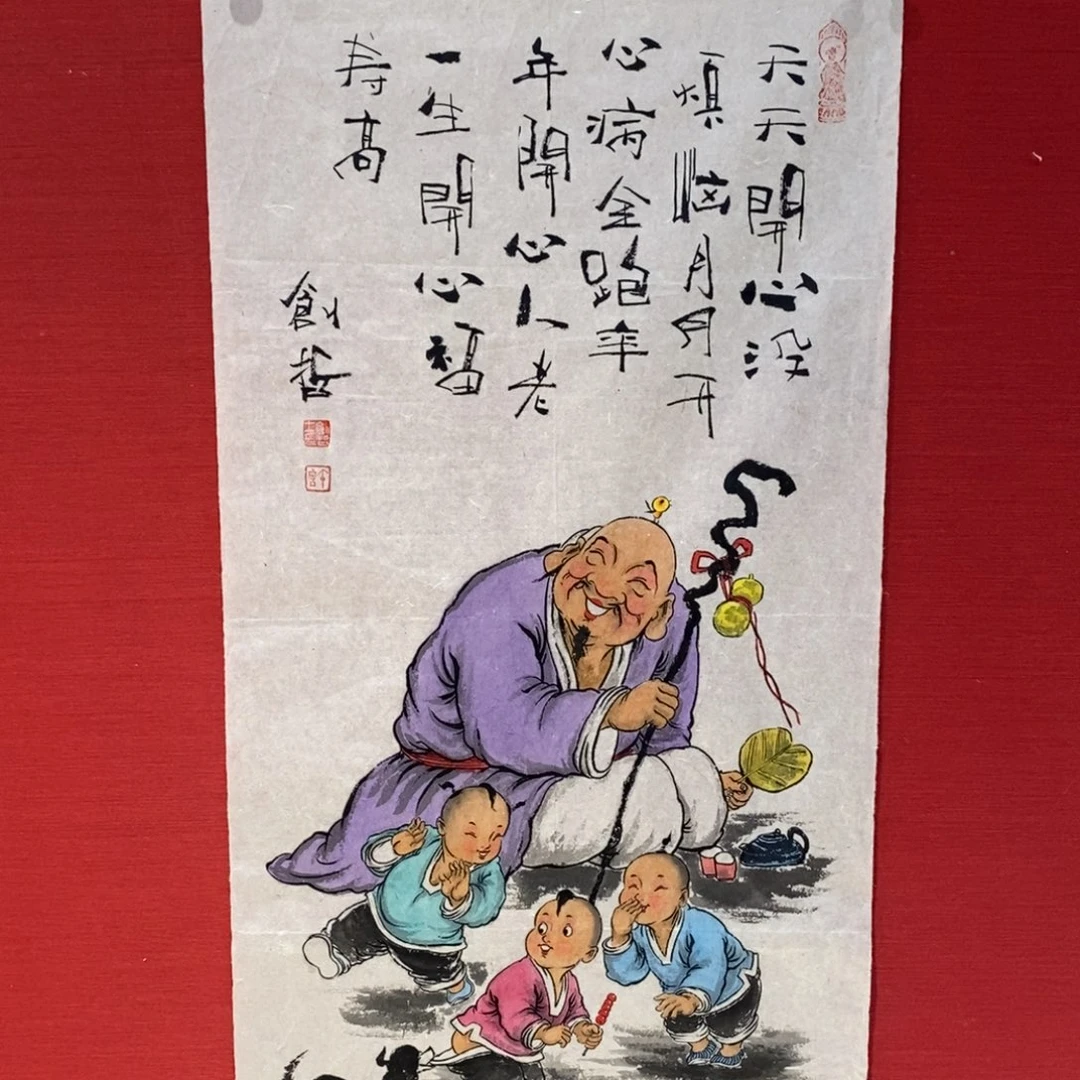 天天開心没
煩恼月月开
心病全跑年
年開心人老
一生開心福
寿高
創哲